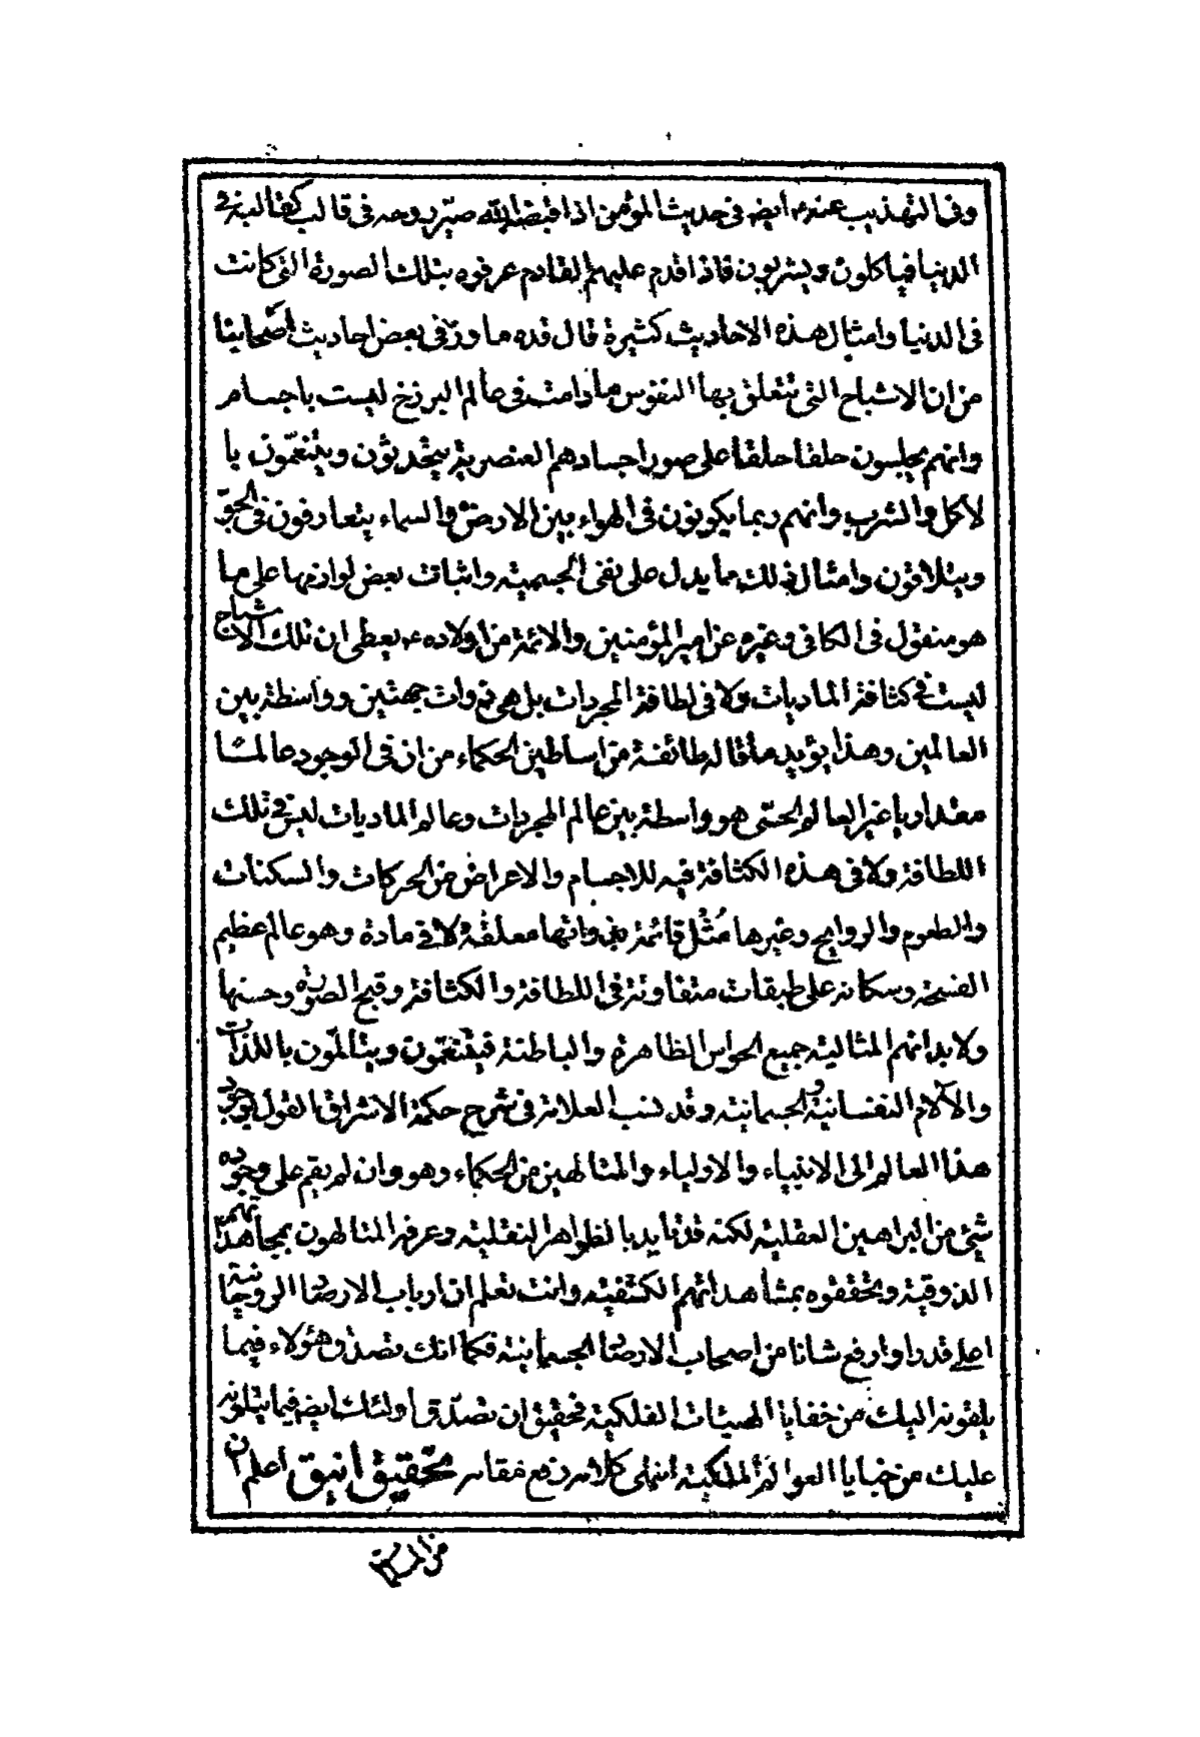 وفى التهذيب عنه ع ايضه فى حديث المؤمن اذا قبضه الله صيّر روحه فى قالب كقالبه فى
الدنيا فياكلون ويشربون فاذا قدم عليهم القادم عرفوه بتلك الصورة التى كانت
فى الدنيا وامثال هذه الاحاديث كثيرة قال قده ما ورد فى بعض احاديث اصحابنا
من ان الاشباح التى تتعلق بها النفوس ما دامت فى عالم البرزخ ليست باجسام
وانهم يجلسون حلقا حلقا على صور اجسادهم العنصرية يتحدثون ويتنعّمون با
لاكل والشرب وانهم ربما يكونون فى الهواء بين الارض والسماء يتعارفون فى الجوّ
ويتلاقون وامثال ذلك مما يدل على نفى الجسمية واثبات بعض لوازمها على ما
هو منقول فى الكافى وغيره عن امير المؤمنين والائمة من اولاده ع يعطى ان تلك الاشباح
ليست فى كثافة الماديات ولا فى لطافة المجردات بل هى ذوات جهتين وواسطة بين
العالمين وهذا يؤيد ما قاله طائفة من اساطين الحكماء من ان فى الوجود عالما
مقداريا غير العالم الحسّى هو واسطة بين عالم المجردات وعالم الماديات ليس فى تلك
اللطافة ولا فى هذه الكثافة فيه للاجسام والاعراض من الحركات والسكنات
والطعوم والروايح وغيرها مُثُل قائمة بذواتها معلقة ولا فى مادة وهو عالم عظيم
الفسحة وسكانه على طبقات متفاوتة فى اللطافة والكثافة وقبح الصورة وحسنها
ولابدانهم المثالية جميع الحواس الظاهرة والباطنة فيتنعّمون ويتالّمون باللذات
والآلام النفسانية والجسمانية وقد نسب العلامة فى شرح حكمة الاشراق القول بوجود
هذا العالم الى الانبياء والاولياء والمتالهين من الحكماء وهو وان لم يقم على وجوده
شيئ من البراهين العقلية لكنه قد تايد بالظواهر النقلية وعرفه المتالهون بمجاهداتهم
الذوقية وتحققوه بمشاهداتهم الكشفية وانت تعلم ان ارباب الارصاد الروحانية
اعلى قدرا وارفع شانا من اصحاب الارصاد الجسمانية فكما انك تصدق هؤلاء فيما
يلقونه اليك من خفايا الهيئات الفلكية فحقيق ان تصدّق اولئك ايضه فيما يتلونه
عليك من خبايا العوالم الملكية انتهى كلامه رفع مقامه تحقيق انيق اعلم ان